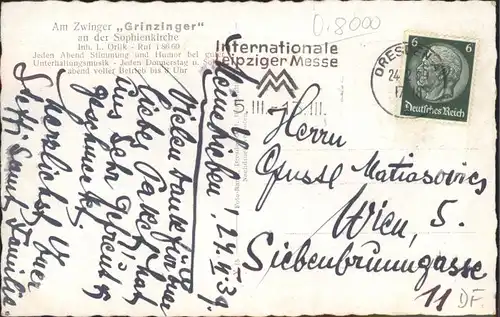 Am Zwinger „Grinzinger"
an der Sophienkirche
Inh. L. Orlik - Ruf 16660
Jeden Abend Stimmung und Humor bei guter
Unterhaltungsmusik - Jeden Donnerstag u.
abend voller Betrieb bis 3 Uhr
D.8000
Internationale
Leipziger Messe
MM
5.III.-13.III.
DRESDEN
24.
6 6
Deutsches Reich
24.
39.
Vielen Dank für Euer
liebes Paket, hat
uns sehr gefreut
geschmeckt.
Herzlichst Euer
samt Familie
Herrn
Gustl Matiasovics
Wien, 5.
Siebenbrunngasse
11
DF.